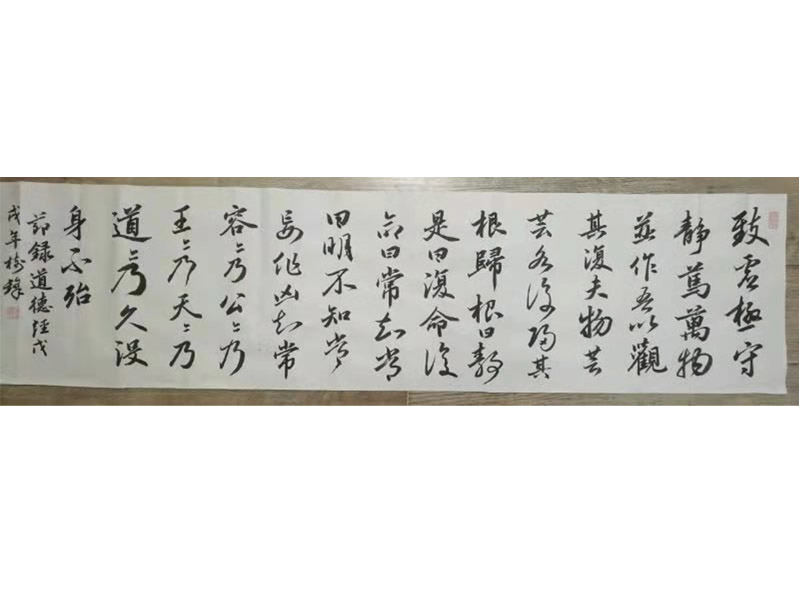 致虚極守
静篤萬物
並作吾以觀
其復夫物芸
芸各復歸其
根歸根曰静
是曰復命復
命曰常知常
曰明不知常
妄作凶知常
容〻乃公〻乃
王〻乃天〻乃
道〻乃久没
身不殆
节録道德经戊
戌年